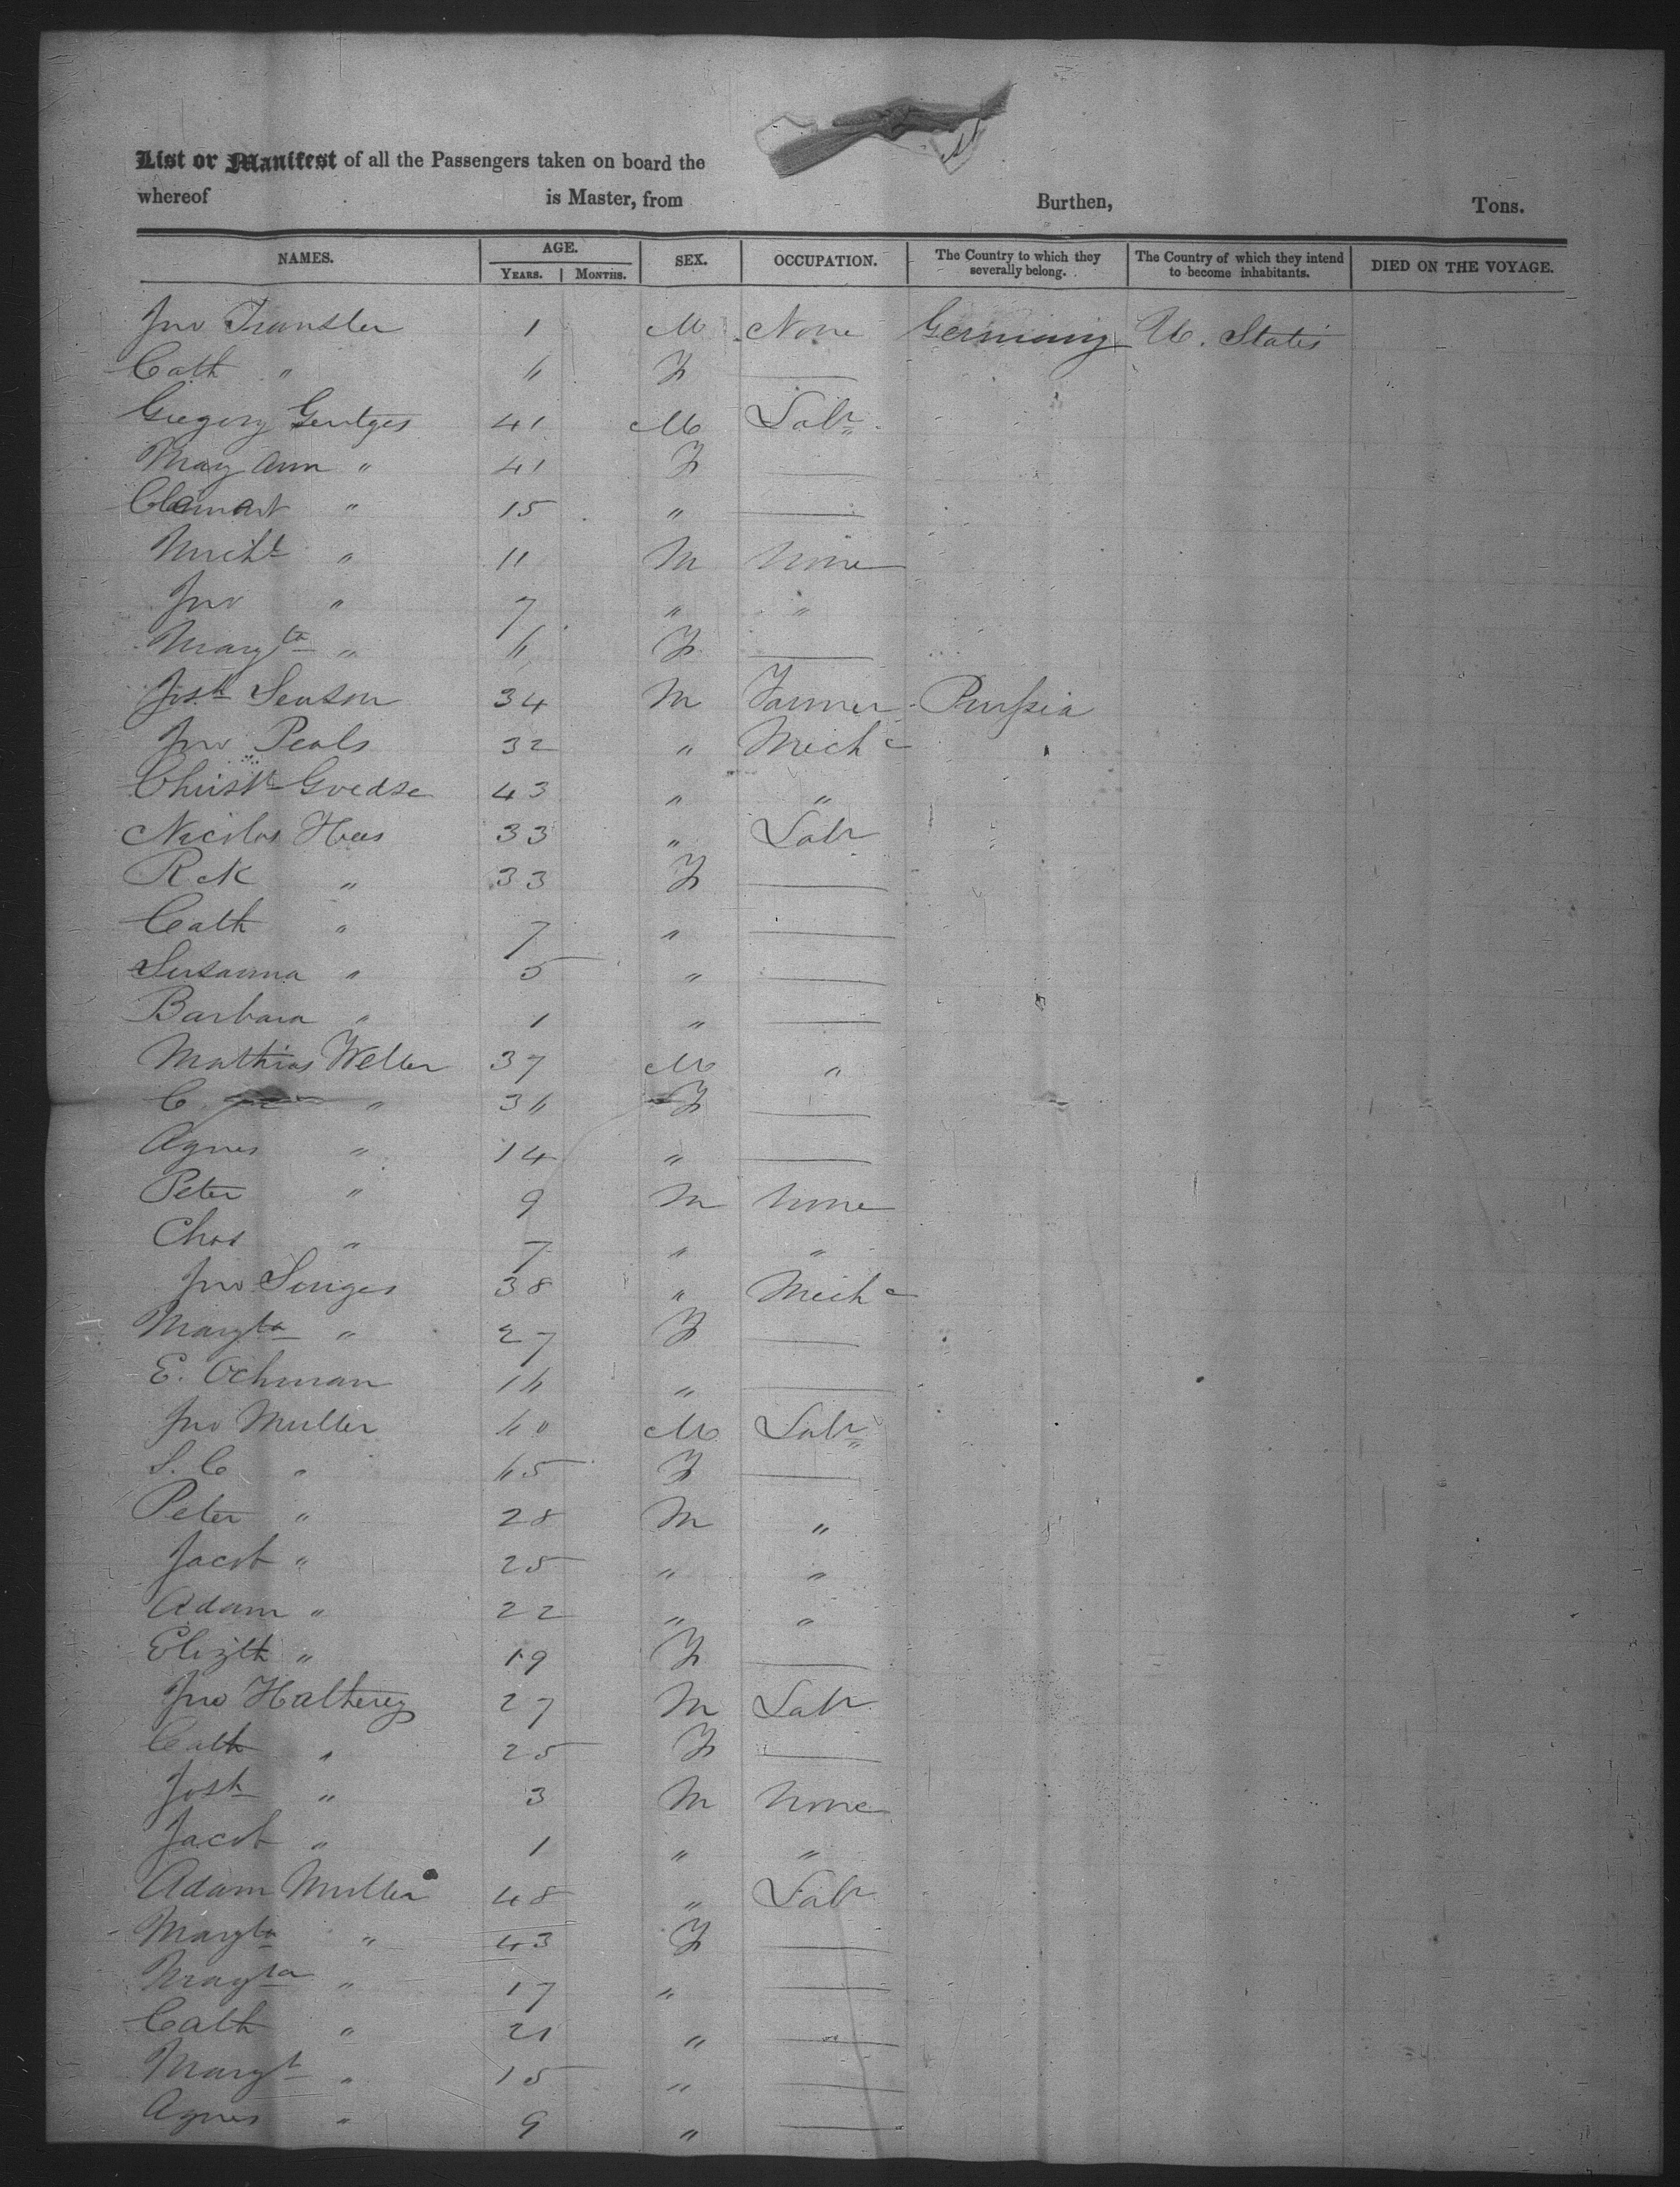 List or Manifest of all the Passengers taken on board the
whereof is Master, from Burthen, Tons.
NAMES. AGE. YEARS. MONTHS. SEX. OCCUPATION. The Country to which they severally belong. The Country of which they intend to become inhabitants. DIED ON THE VOYAGE.
Jno Transler 1 M None Germany U. States
Cath " 6 F —
Gregory Gentges 41 M Labr
May Ann " 41 F —
Clemart " 15 " —
Michl " 11 M None
Jno " 7 " "
Margta " 6 F —
Josh Senson 34 M Farmer Prussia
Jno Peals 32 " Mechc
Christn Goedse 43 " "
Nicolas Hees 33 " Labr
" 33 F —
Cath " 7 " —
Susanna " 5 " —
Barbara " 1 " —
Mathias Weller 37 M "
C " 36 F —
Agnes " 14 " —
Peter " 9 M None
Chas " 7 " "
Jno Singes 38 " Mechc
Margta " 27 F —
E. Ochman 16 " —
Jno Muller 60 M Labr
S. C " 65 F —
Peter " 28 M "
Jacob " 25 " "
Adam " 22 " "
Elizth " 19 F —
Jno Halthery 27 M Labr
Cath " 25 F —
Josh " 3 M None
Jacob " 1 " "
Adam Muller 48 " Labr
Margta " 43 F —
Magta " 17 " —
Cath " 21 " —
Margt " 15 " —
Agnes " 9 " —